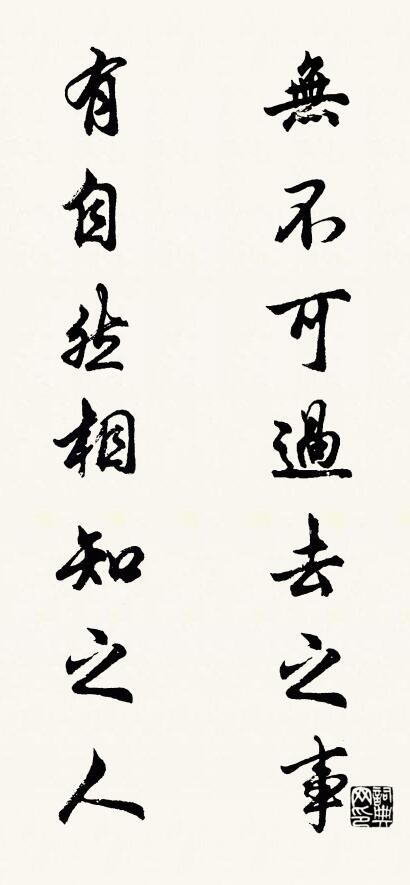 無不可過去之事
有自然相知之人
詞典網印